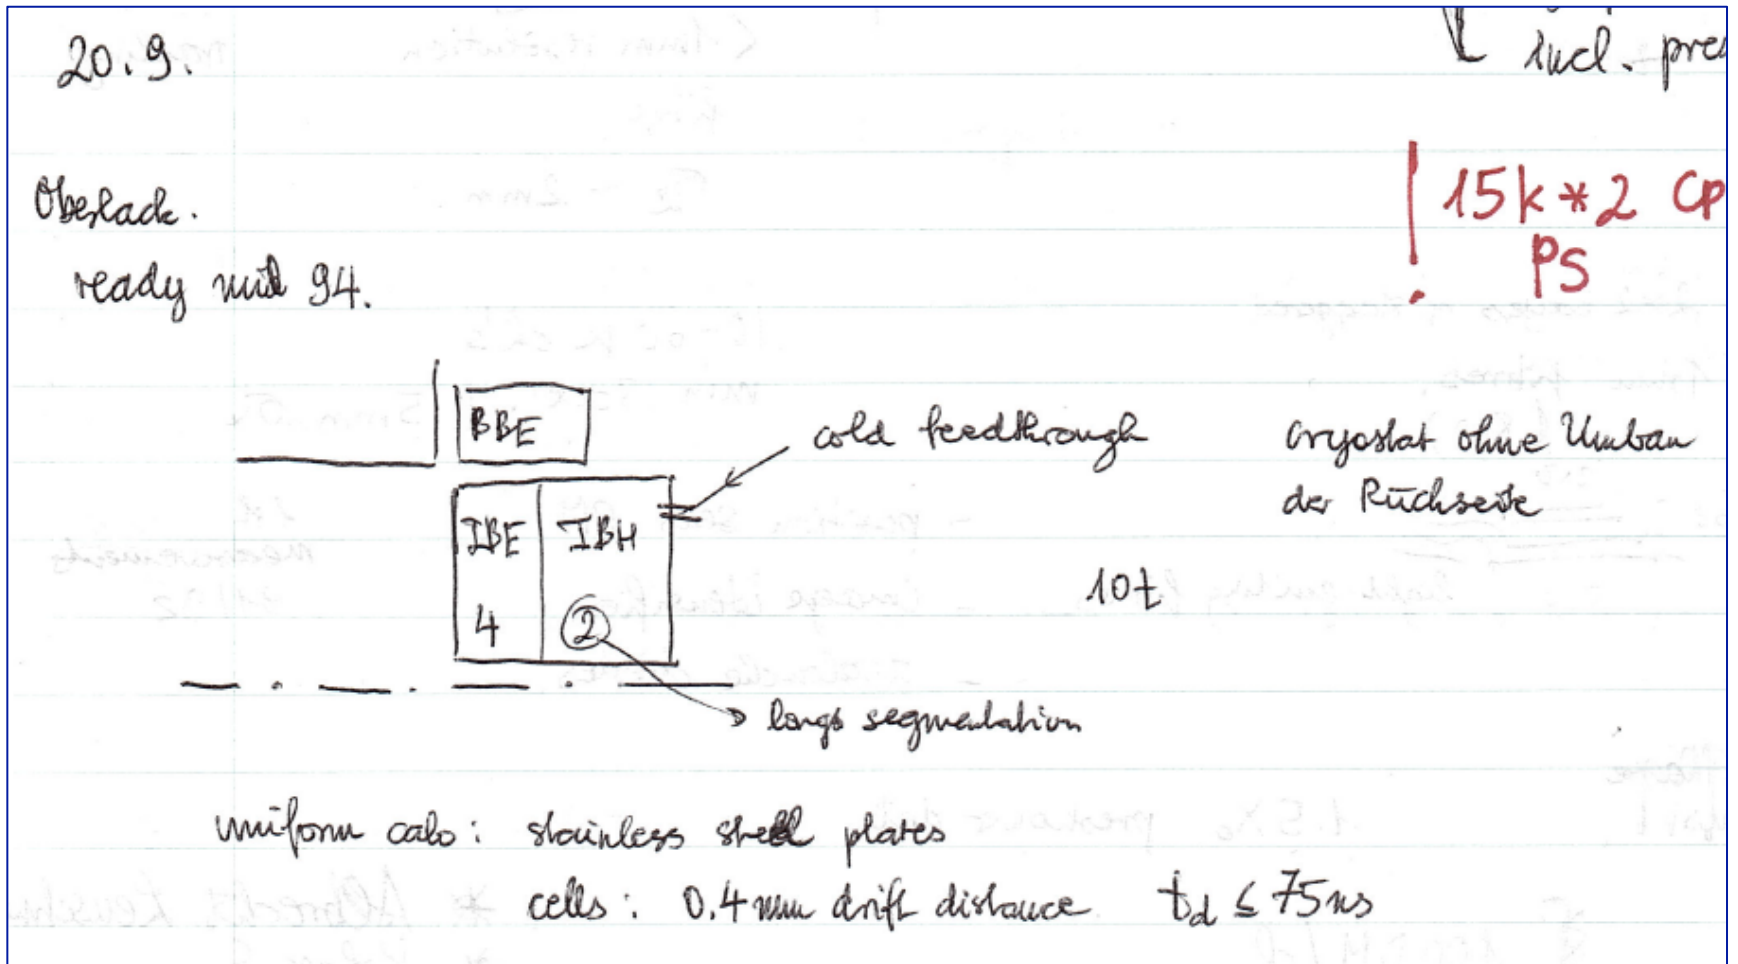 20.9.
incl.
Oberlack.
15k*2
PS
ready mid 94.
BBE
cold feedthrough
cryostat ohne Umbau
der Rückseite
IBE IBH
4 2
10t
longt segmentation
uniform calo: stainless steel plates
cells: 0.4mm drift distance td ≤ 75ns